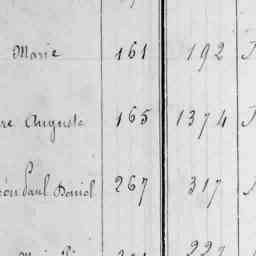 Marie 161 192
re Auguste 165 1374
éon Paul David 267 317